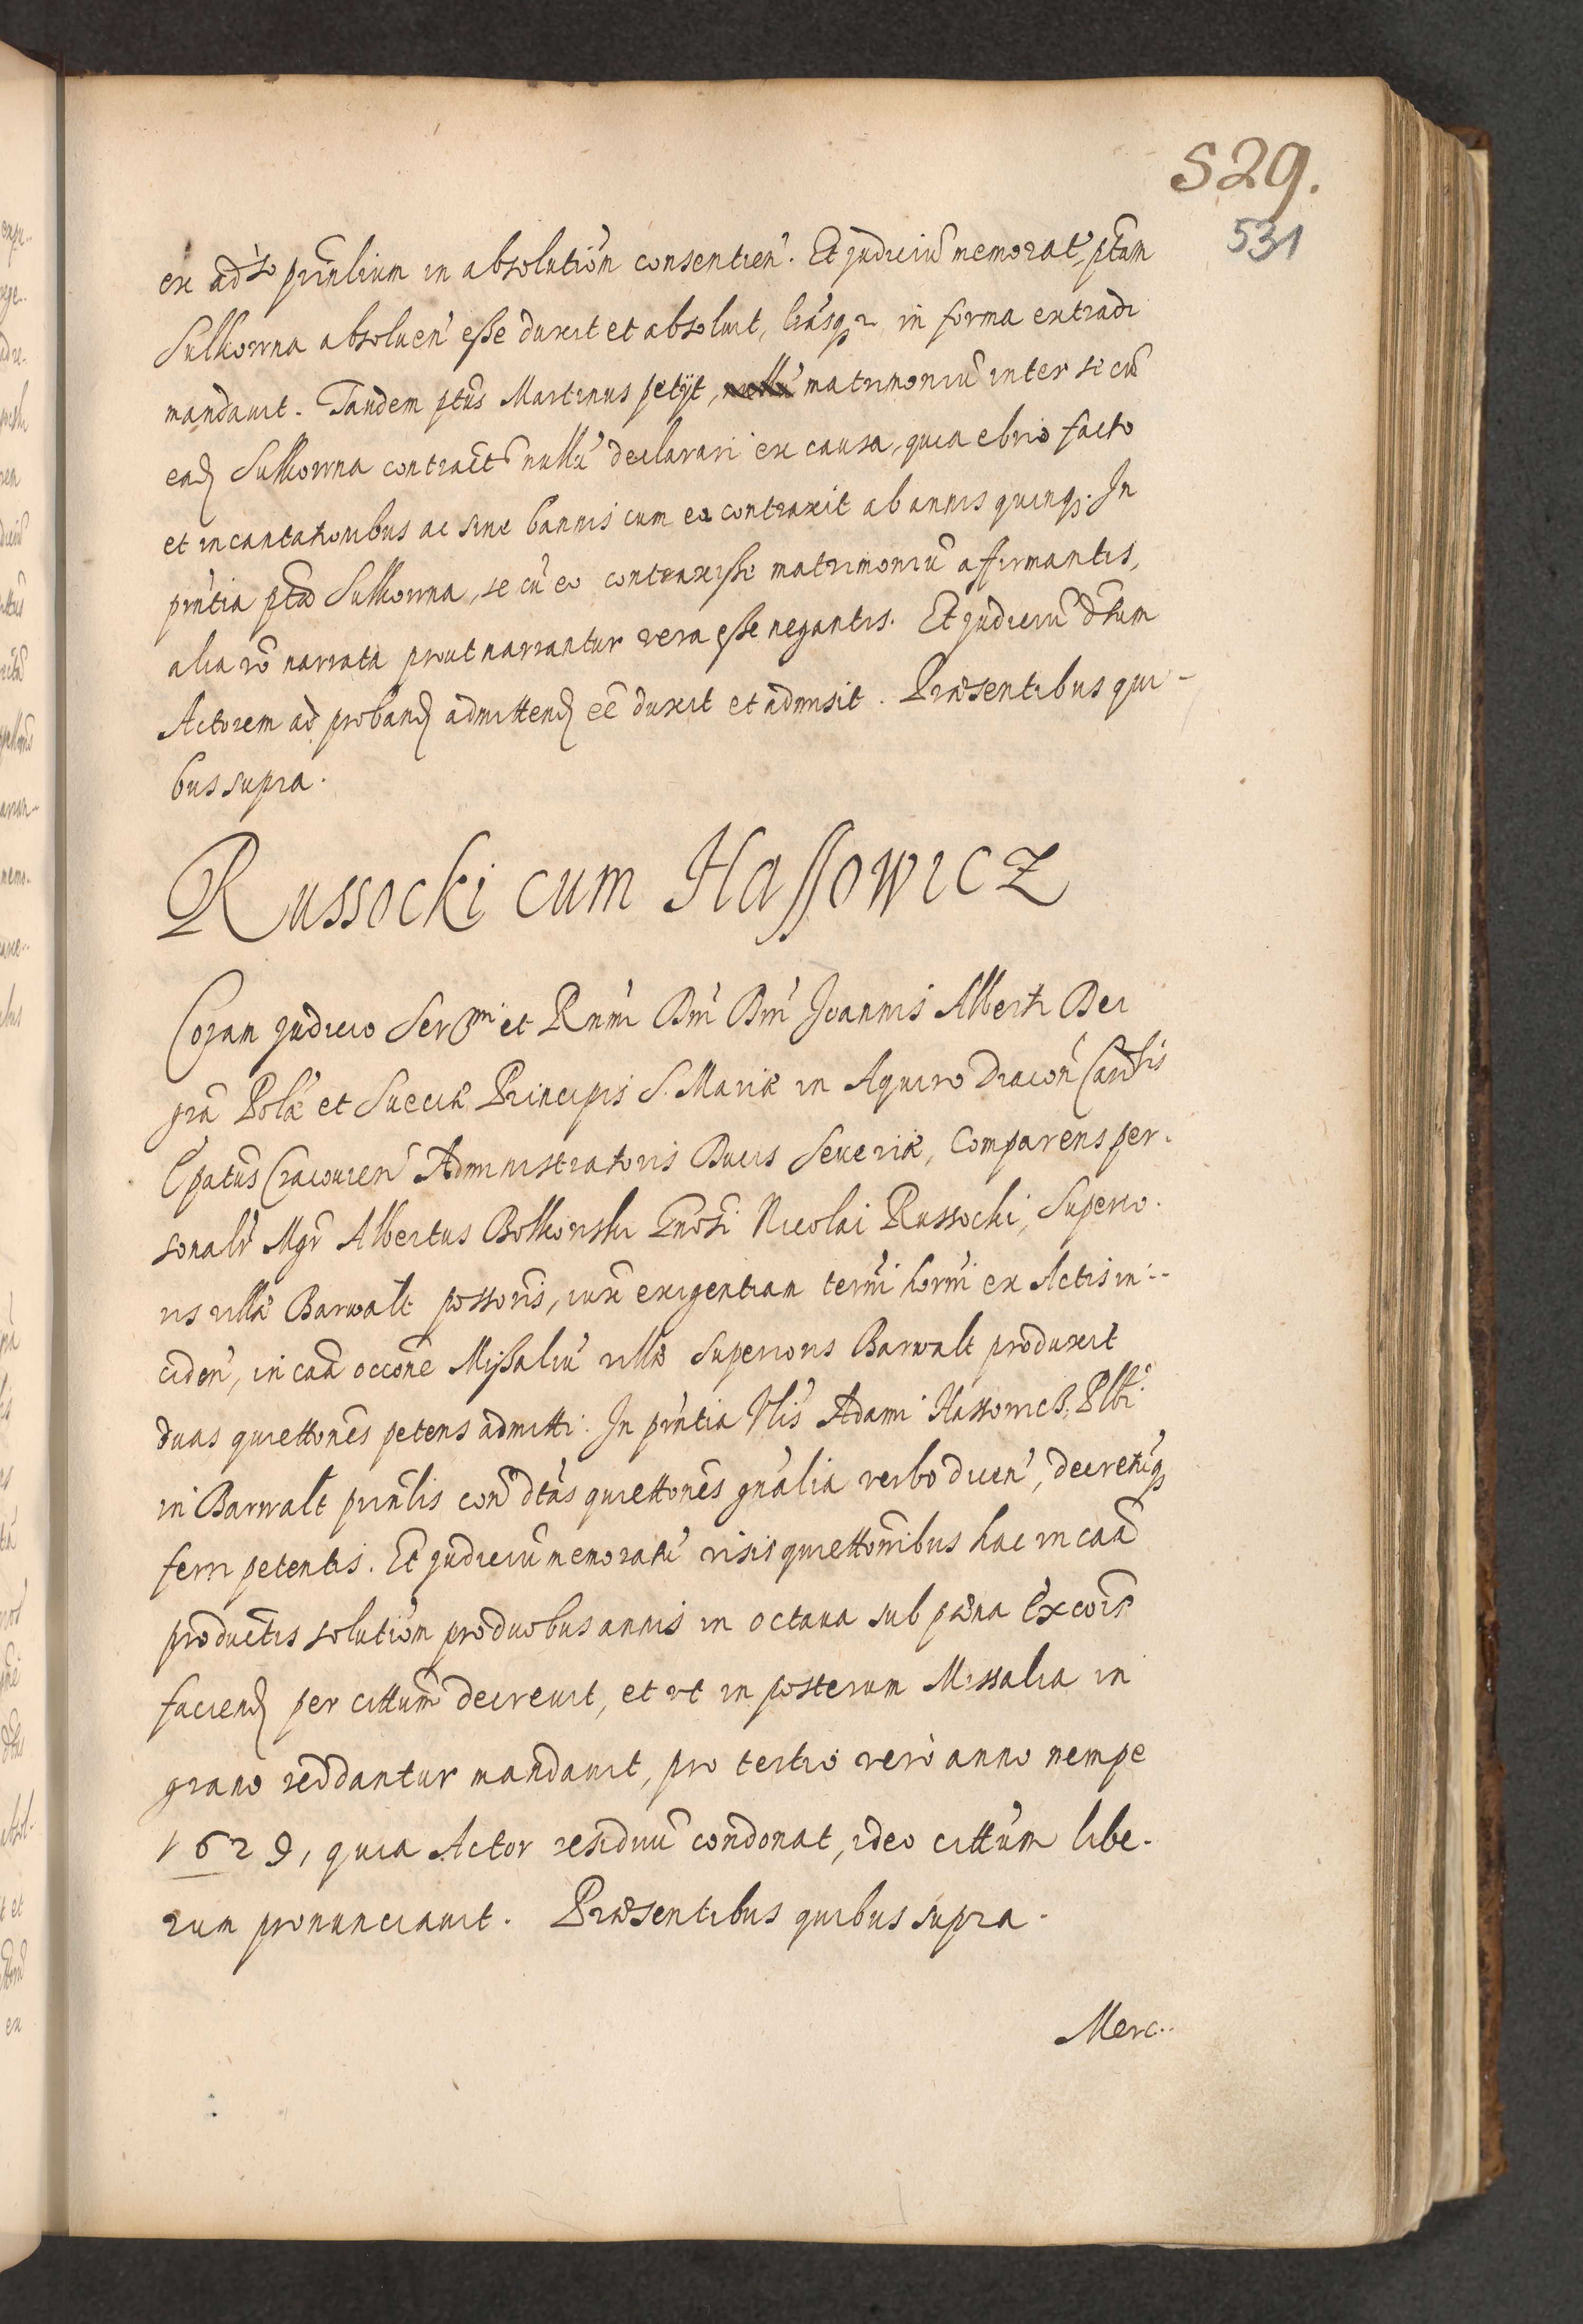 529.
531
ex adso prñlium in absolutiõn consentien̄. Et judiciũ memorat̃ ptam
Sulkowna absoluen̄ esse duxit et absoluit, lrãsq3 in forma extradi
mandauit. Tandem ptũs Martinus petijt, matrimoniũ inter se cũ
ead Sulkowna contractũ nullũ declarari ex causa, quia ebrio facto
et incantationibus ac sine bannis cum ea contraxit ab annis quinq3. In
pñtia ptæ Sulkowna, se cũ eo contraxisse matrimoniũ affirmantis,
alia vo narrata prout narrantur vera esse negantis. Et judiciũ dtum
Actorem ad proband admittend eẽ duxit et admisit. Præsentibus qui-
bus supra.
Russocki cum Hassowicz
Coram judicio Sermi et Rnmi Dni Dni Joannis Alberti Dei
gra Polæ et Sueciæ Principis S. Mariæ in Aquiro Diacon Cardlis
Epatus Cracouien Administratoris Ducis Seueriæ, Comparens per-
sonalr Mgr Albertus Bolkowski Gnosi Nicolai Russocki, Superio-
ris villæ Barwalt possoris, iuxe exigentiam termi horni ex Actis in-
ciden, in caa occone Missaliũ villæ Superioris Barwalt produxit
duas quiettones petens admitti. In pñtia Vlis Adami Hassowicz, Plbi
in Barwalt prinlis con dtas quiettones gnalia verbo dicen, decretũq3
ferri petentis. Et judiciũ memoratũ visis quiettonibus hac in caa
productis solutiõn pro duobus annis in octaua sub pœna Excois
faciend per cittum decreuit, et vt in posterum Missalia in
grano reddantur mandauit, pro tertio vero anno nempe
1629, quia Actor residuũ condonat, ideo cittum libe-
rum pronunciauit. Præsentibus quibus supra.
Merc..